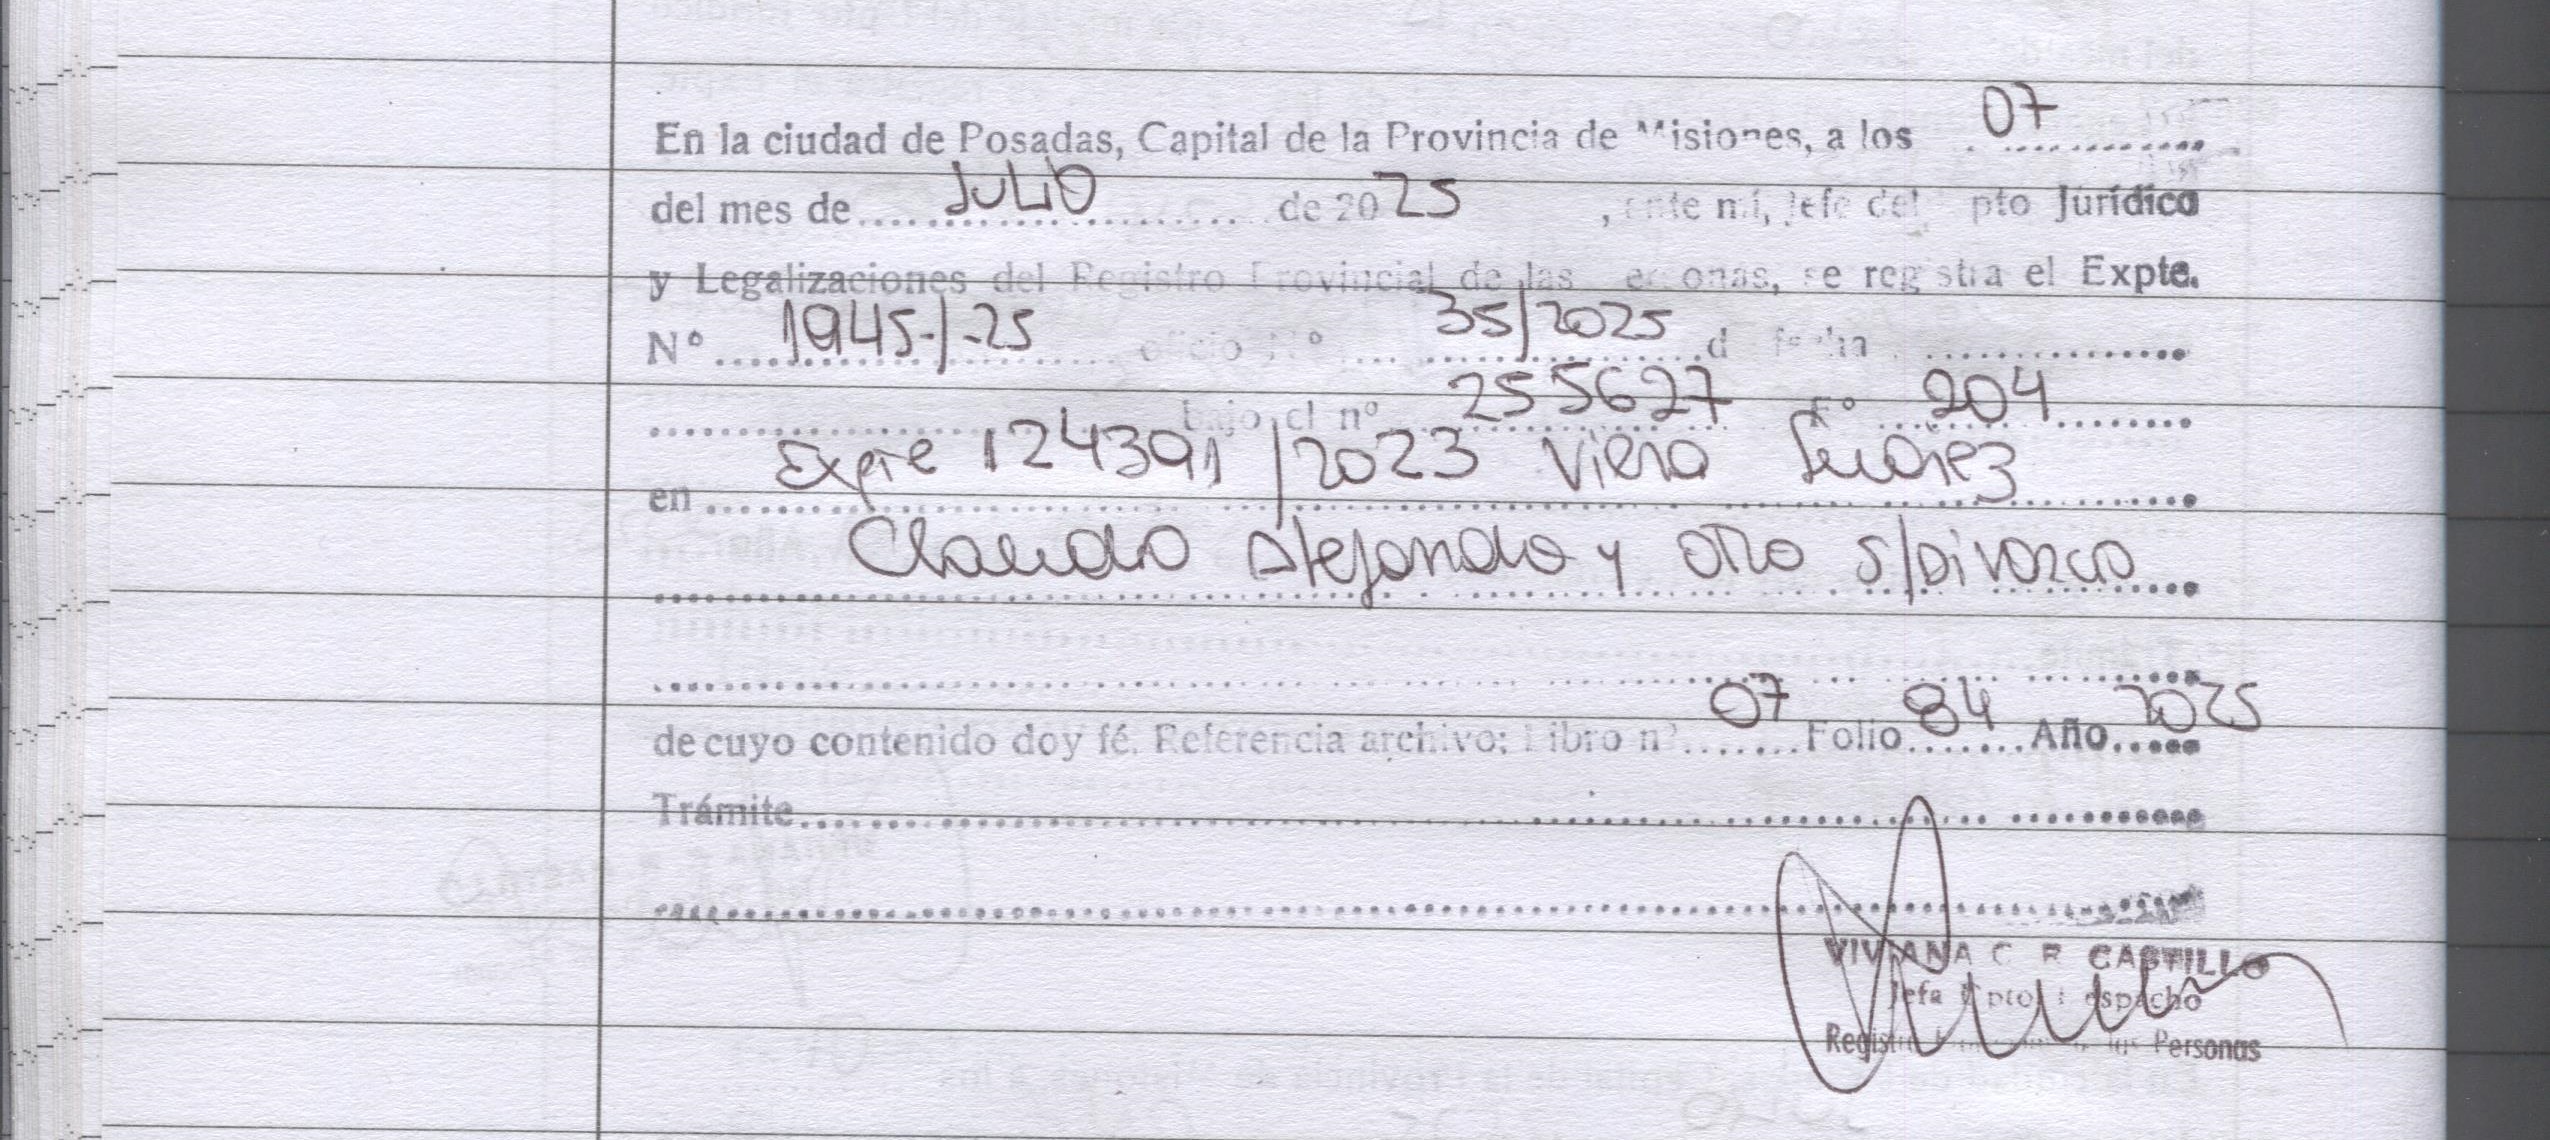 En la ciudad de Posadas, Capital de la Provincia de Misiones, a los 07
del mes de JULIO de 2025, ante mí, Jefe del Dpto Jurídico
y Legalizaciones del Registro Provincial de las Personas, se registra el Expte.
Nº 1945-/-25 oficio Nº 35/2025 de fecha
bajo el nº 255627 Fº 204
en Expte 124391/2023 Viera Suárez
Claudio Alejandro y otro s/Divorcio
de cuyo contenido doy fé. Referencia archivo: Libro nº 07 Folio 84 Año 2025
Trámite
VIVIANA C R CASTILLO
Jefa Dpto Despacho
Registro Personas